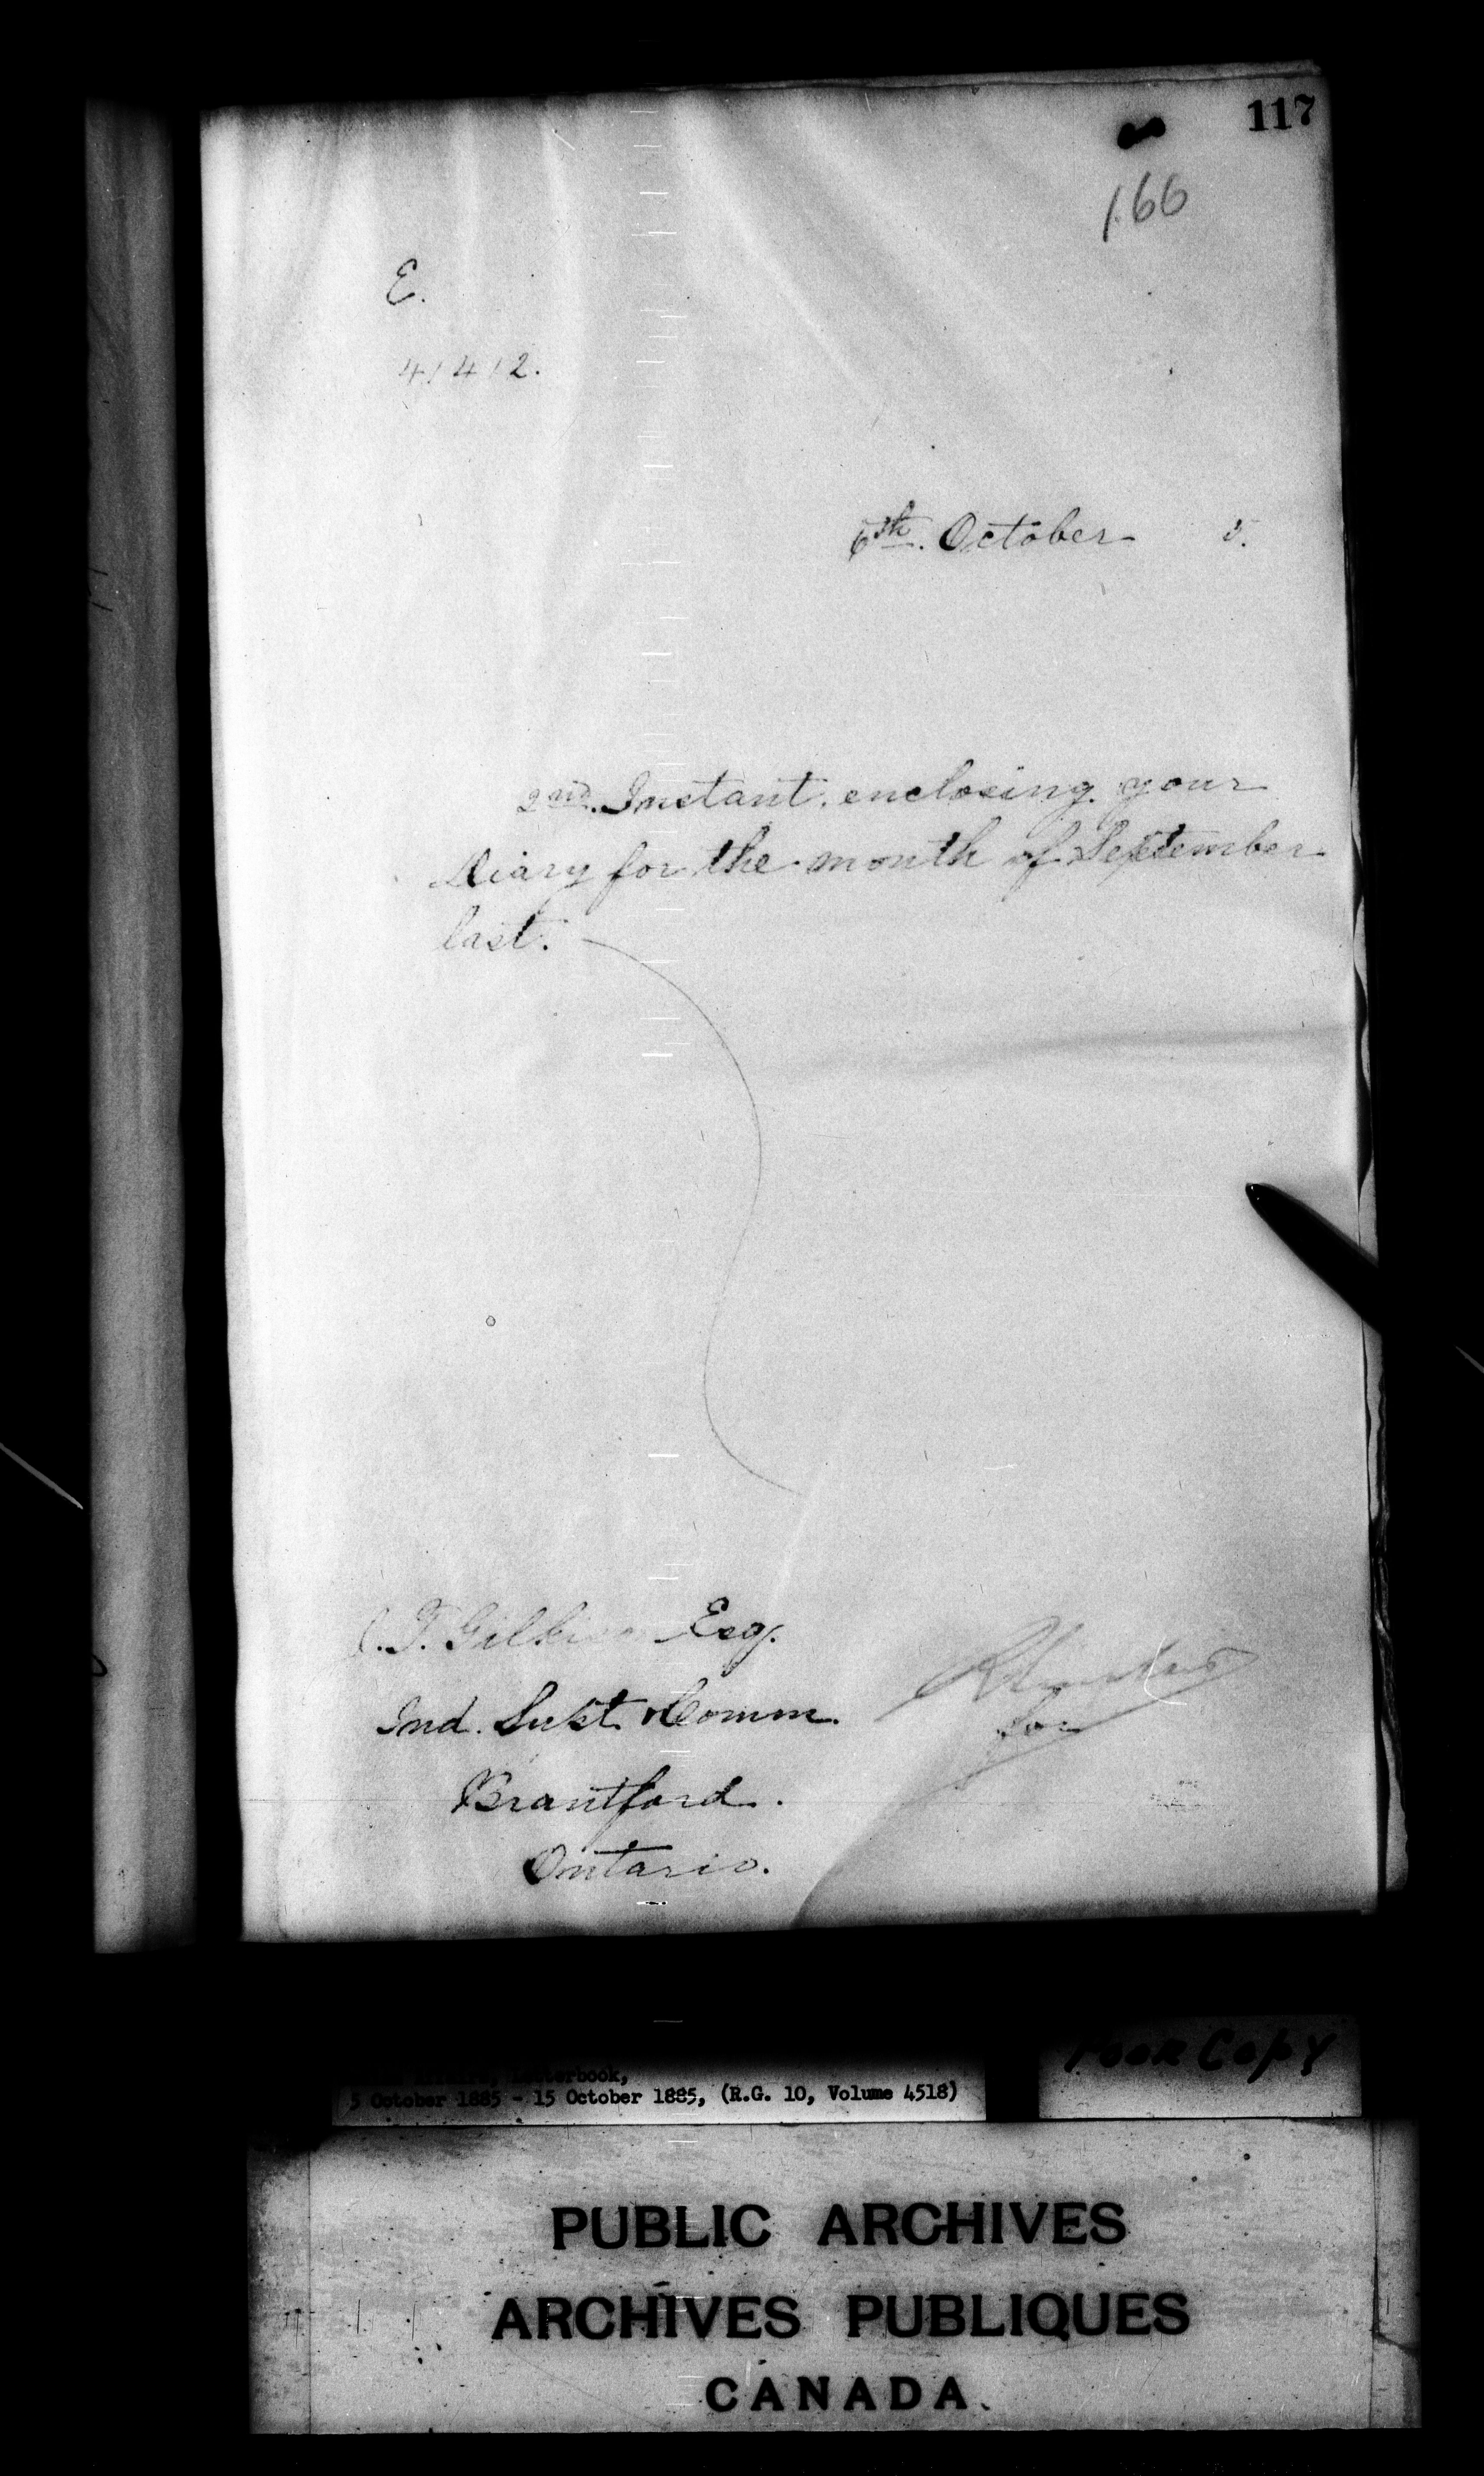 117
166
E.
41412.
6th. October 5.
2nd. Instant. enclosing your
Diary for the month of September
last.
J.T. Gilkison Esq.
Ind. Supt. & Comm.
for
Brantford.
Ontario.
Poor Copy
Letterbook,
5 October 1885 - 15 October 1885, (R.G. 10, Volume 4518)
PUBLIC ARCHIVES
ARCHIVES PUBLIQUES
CANADA